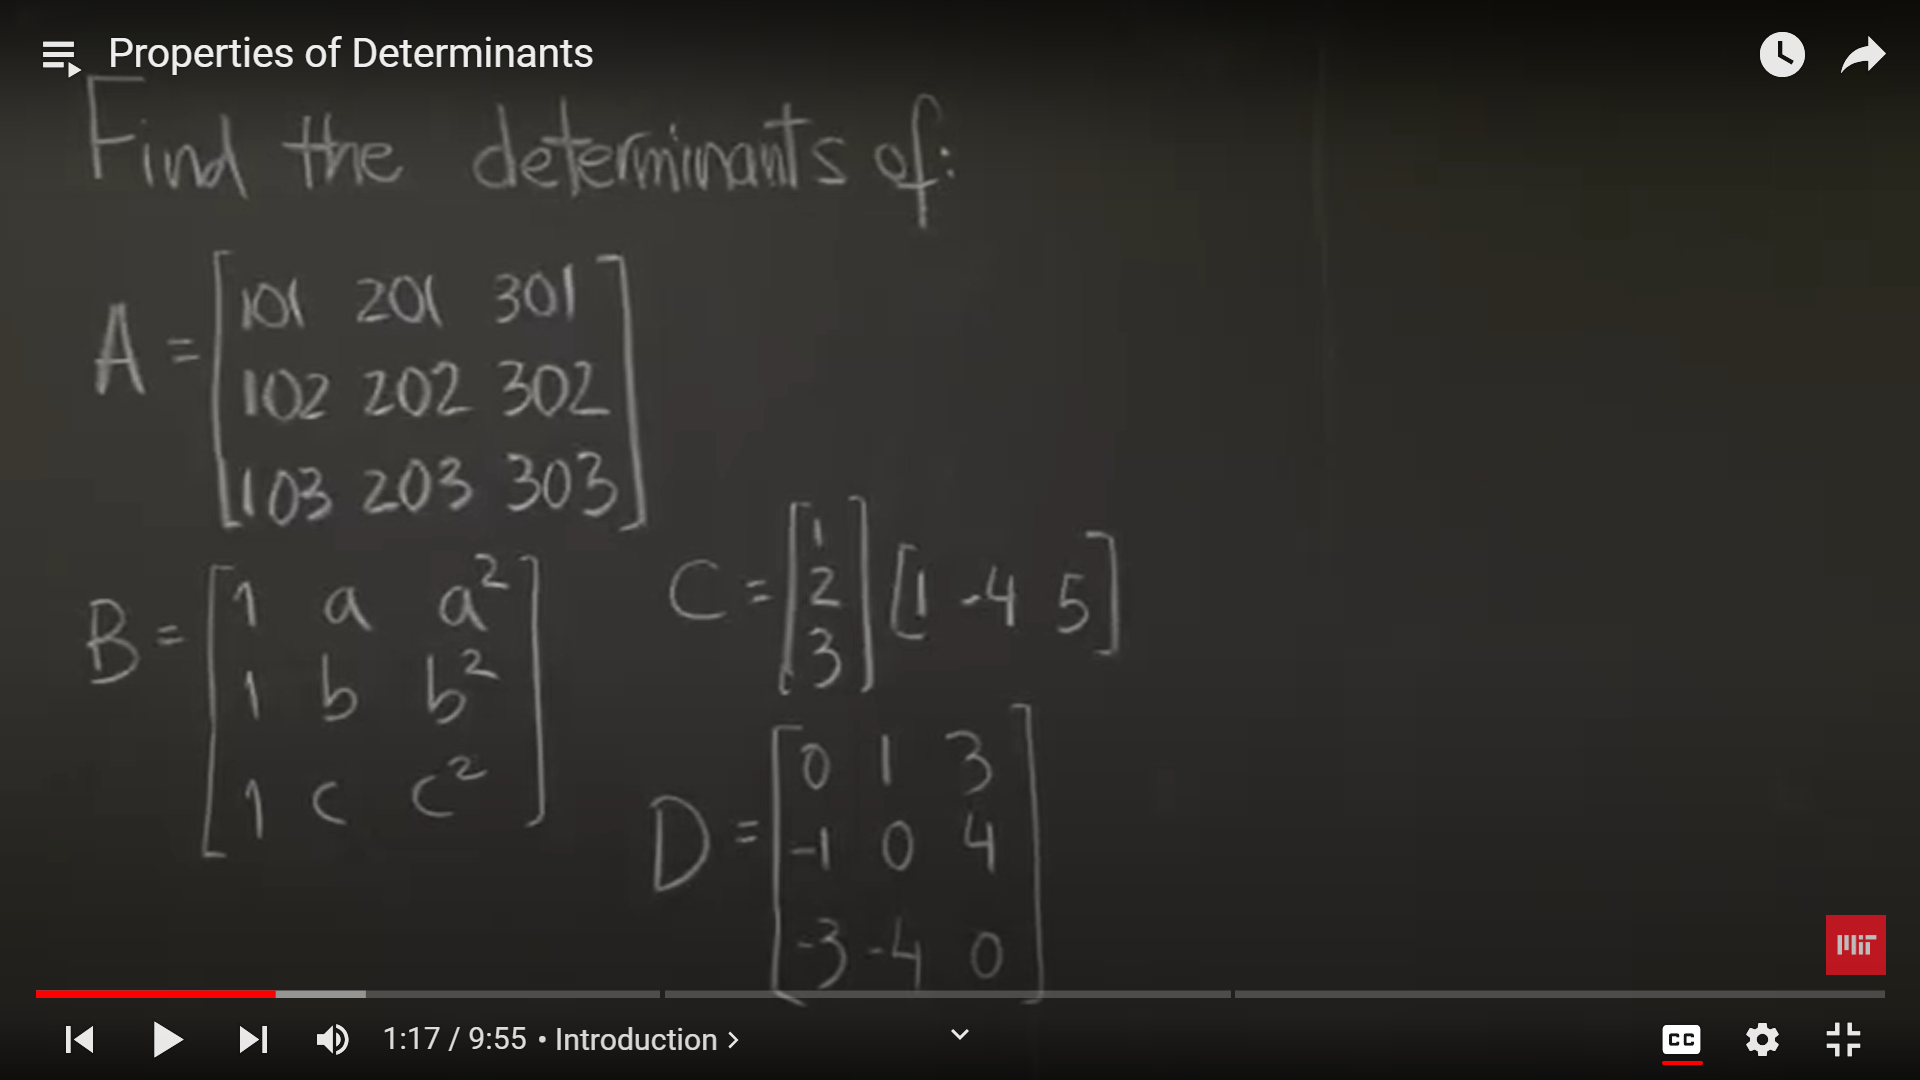 Properties of Determinants
Find the determinants of:
A = [101 201 301
102 202 302
103 203 303]
B = [1 a a²
1 b b²
1 c c²]
C = [1
2
3] [1 -4 5]
D = [0 1 3
-1 0 4
-3 -4 0]
MIT
1:17 / 9:55 • Introduction >
CC